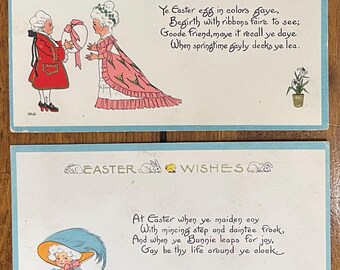 Ye Easter egg in colors gaye,
Begirth with ribbons faire to see;
Goode friend, maye it recall ye daye
When springtime gayly decks ye lea.
EASTER WISHES
At Easter when ye maiden coy
With mincing step and daintee frock,
And when ye Bunnie leaps for joy,
Gay be thy life around ye clock.